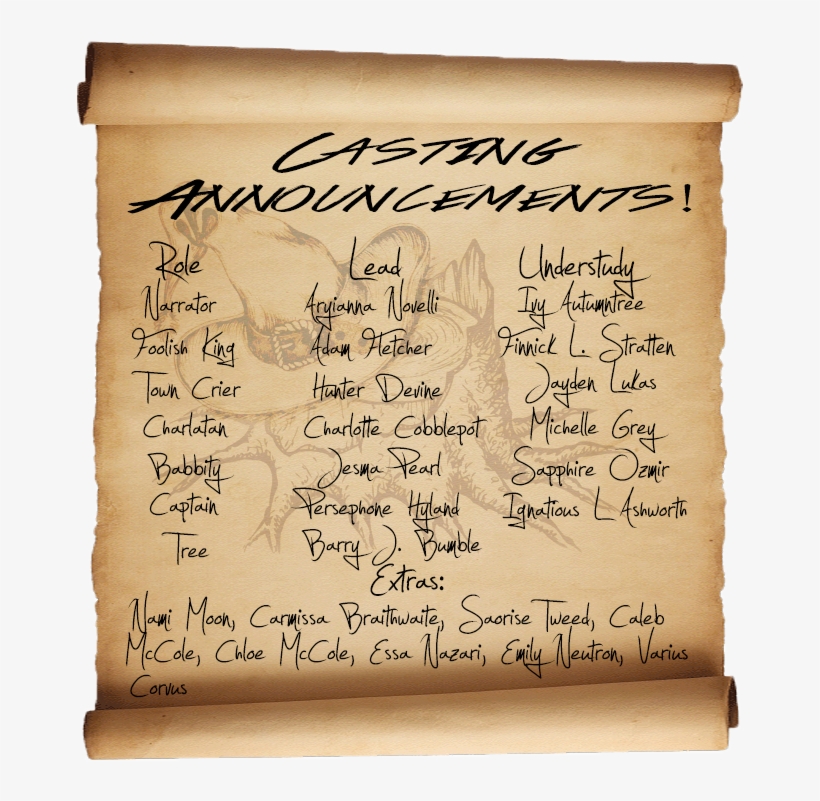 CASTING
ANNOUNCEMENTS!
Role Lead Understudy
Narrator Aryianna Novelli Ivy Autumntree
Foolish King Adam Fletcher Finnick L. Stratten
Town Crier Hunter Devine Jayden Lukas
Charlatan Charlotte Cobblepot Michelle Grey
Babbity Jesma Pearl Sapphire Ozmir
Captain Persephone Hyland Ignatious L Ashworth
Tree Barry J. Bumble
Extras:
Nami Moon, Carmissa Braithwaite, Saorise Tweed, Caleb
McCole, Chloe McCole, Essa Nazari, Emily Neutron, Varius
Corvus